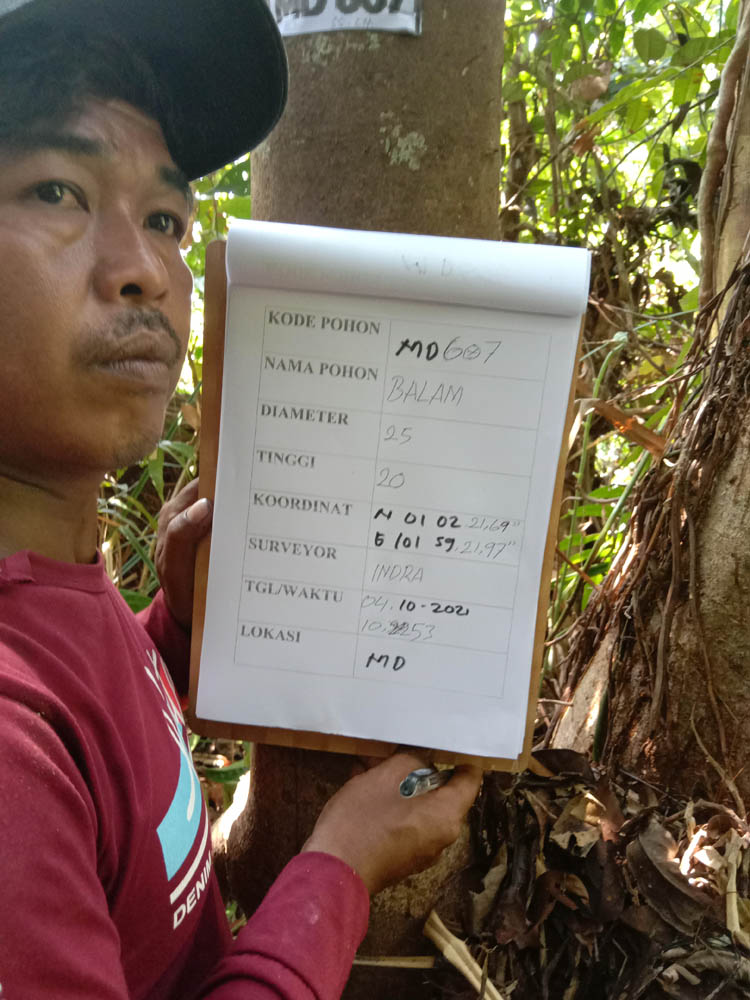 MD 607
KODE POHON MD607
NAMA POHON BALAM
DIAMETER 25
TINGGI 20
KOORDINAT N 01 02 21,69"
E 101 59.21,97"
SURVEYOR INDRA
TGL/WAKTU 04.10-2021
10.53
LOKASI MD
DENIM